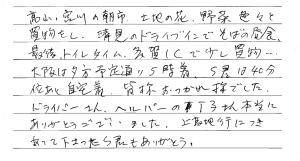 高山、宮川の朝市 土地の花、野菜 色々と
買物をし、清見のドライブインでそばの昼食、
最后、トイレタイム、多賀ICで少し買物…
大阪は夕方予定通り5時着、S君は40分
位あと自宅着、皆様おつかれ様でした。
ドライバーさん、ヘルパーの東丁さん本当に
ありがとうございました。上高地行につき
あって下さったS君もありがとう。